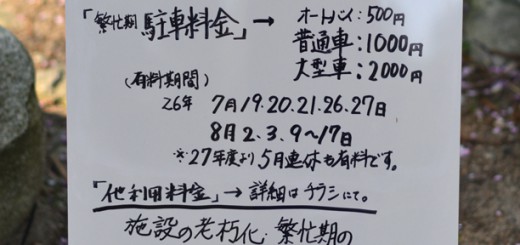 「繁忙期 駐車料金」→ オートバイ:500円
普通車:1000円
大型車:2000円
(有料期間)
26年 7月19.20.21.26.27日
8月2.3.9~17日
※27年度より5月連休も有料です。
「他利用料金」→詳細はチラシにて。
施設の老朽化・繁忙期の